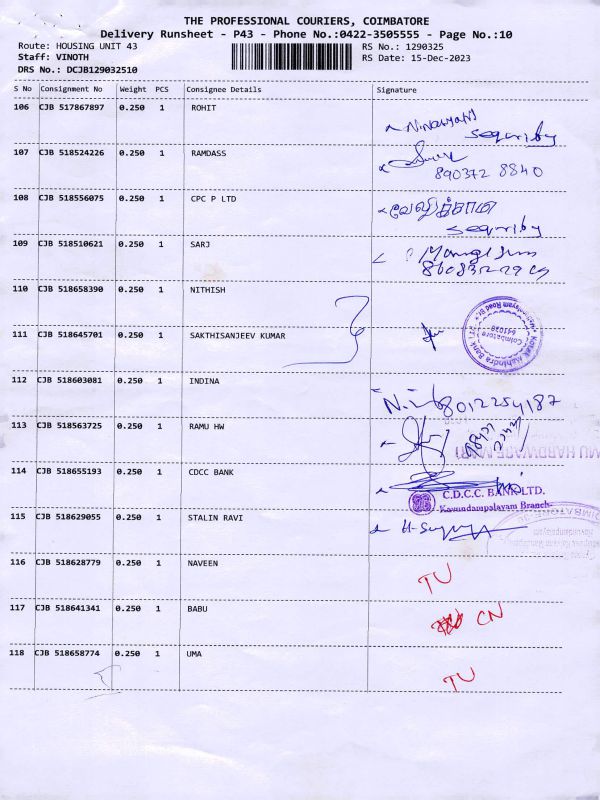 THE PROFESSIONAL COURIERS, COIMBATORE
Delivery Runsheet - P43 - Phone No.:0422-3505555 - Page No.:10
Route: HOUSING UNIT 43
RS No.: 1290325
Staff: VINOTH
RS Date: 15-Dec-2023
DRS No.: DCJB129032510
S No Consignment No Weight PCS Consignee Details Signature
106 CJB 517867897 0.250 1 ROHIT
security
107 CJB 518524226 0.250 1 RAMDASS
890372 8840
108 CJB 518556075 0.250 1 CPC P LTD
security
109 CJB 518510621 0.250 1 SARJ
110 CJB 518658390 0.250 1 NITHISH
111 CJB 518645701 0.250 1 SAKTHISANJEEV KUMAR
Kotak Mahindra Bank
Coimbatore
641038
112 CJB 518603081 0.250 1 INDINA
8012254187
113 CJB 518563725 0.250 1 RAMU HW
114 CJB 518655193 0.250 1 CDCC BANK
C.D.C.C. BANK LTD.
Kavundampalayam Branch
115 CJB 518629055 0.250 1 STALIN RAVI
116 CJB 518628779 0.250 1 NAVEEN
TU
117 CJB 518641341 0.250 1 BABU
CN
118 CJB 518658774 0.250 1 UMA
TU